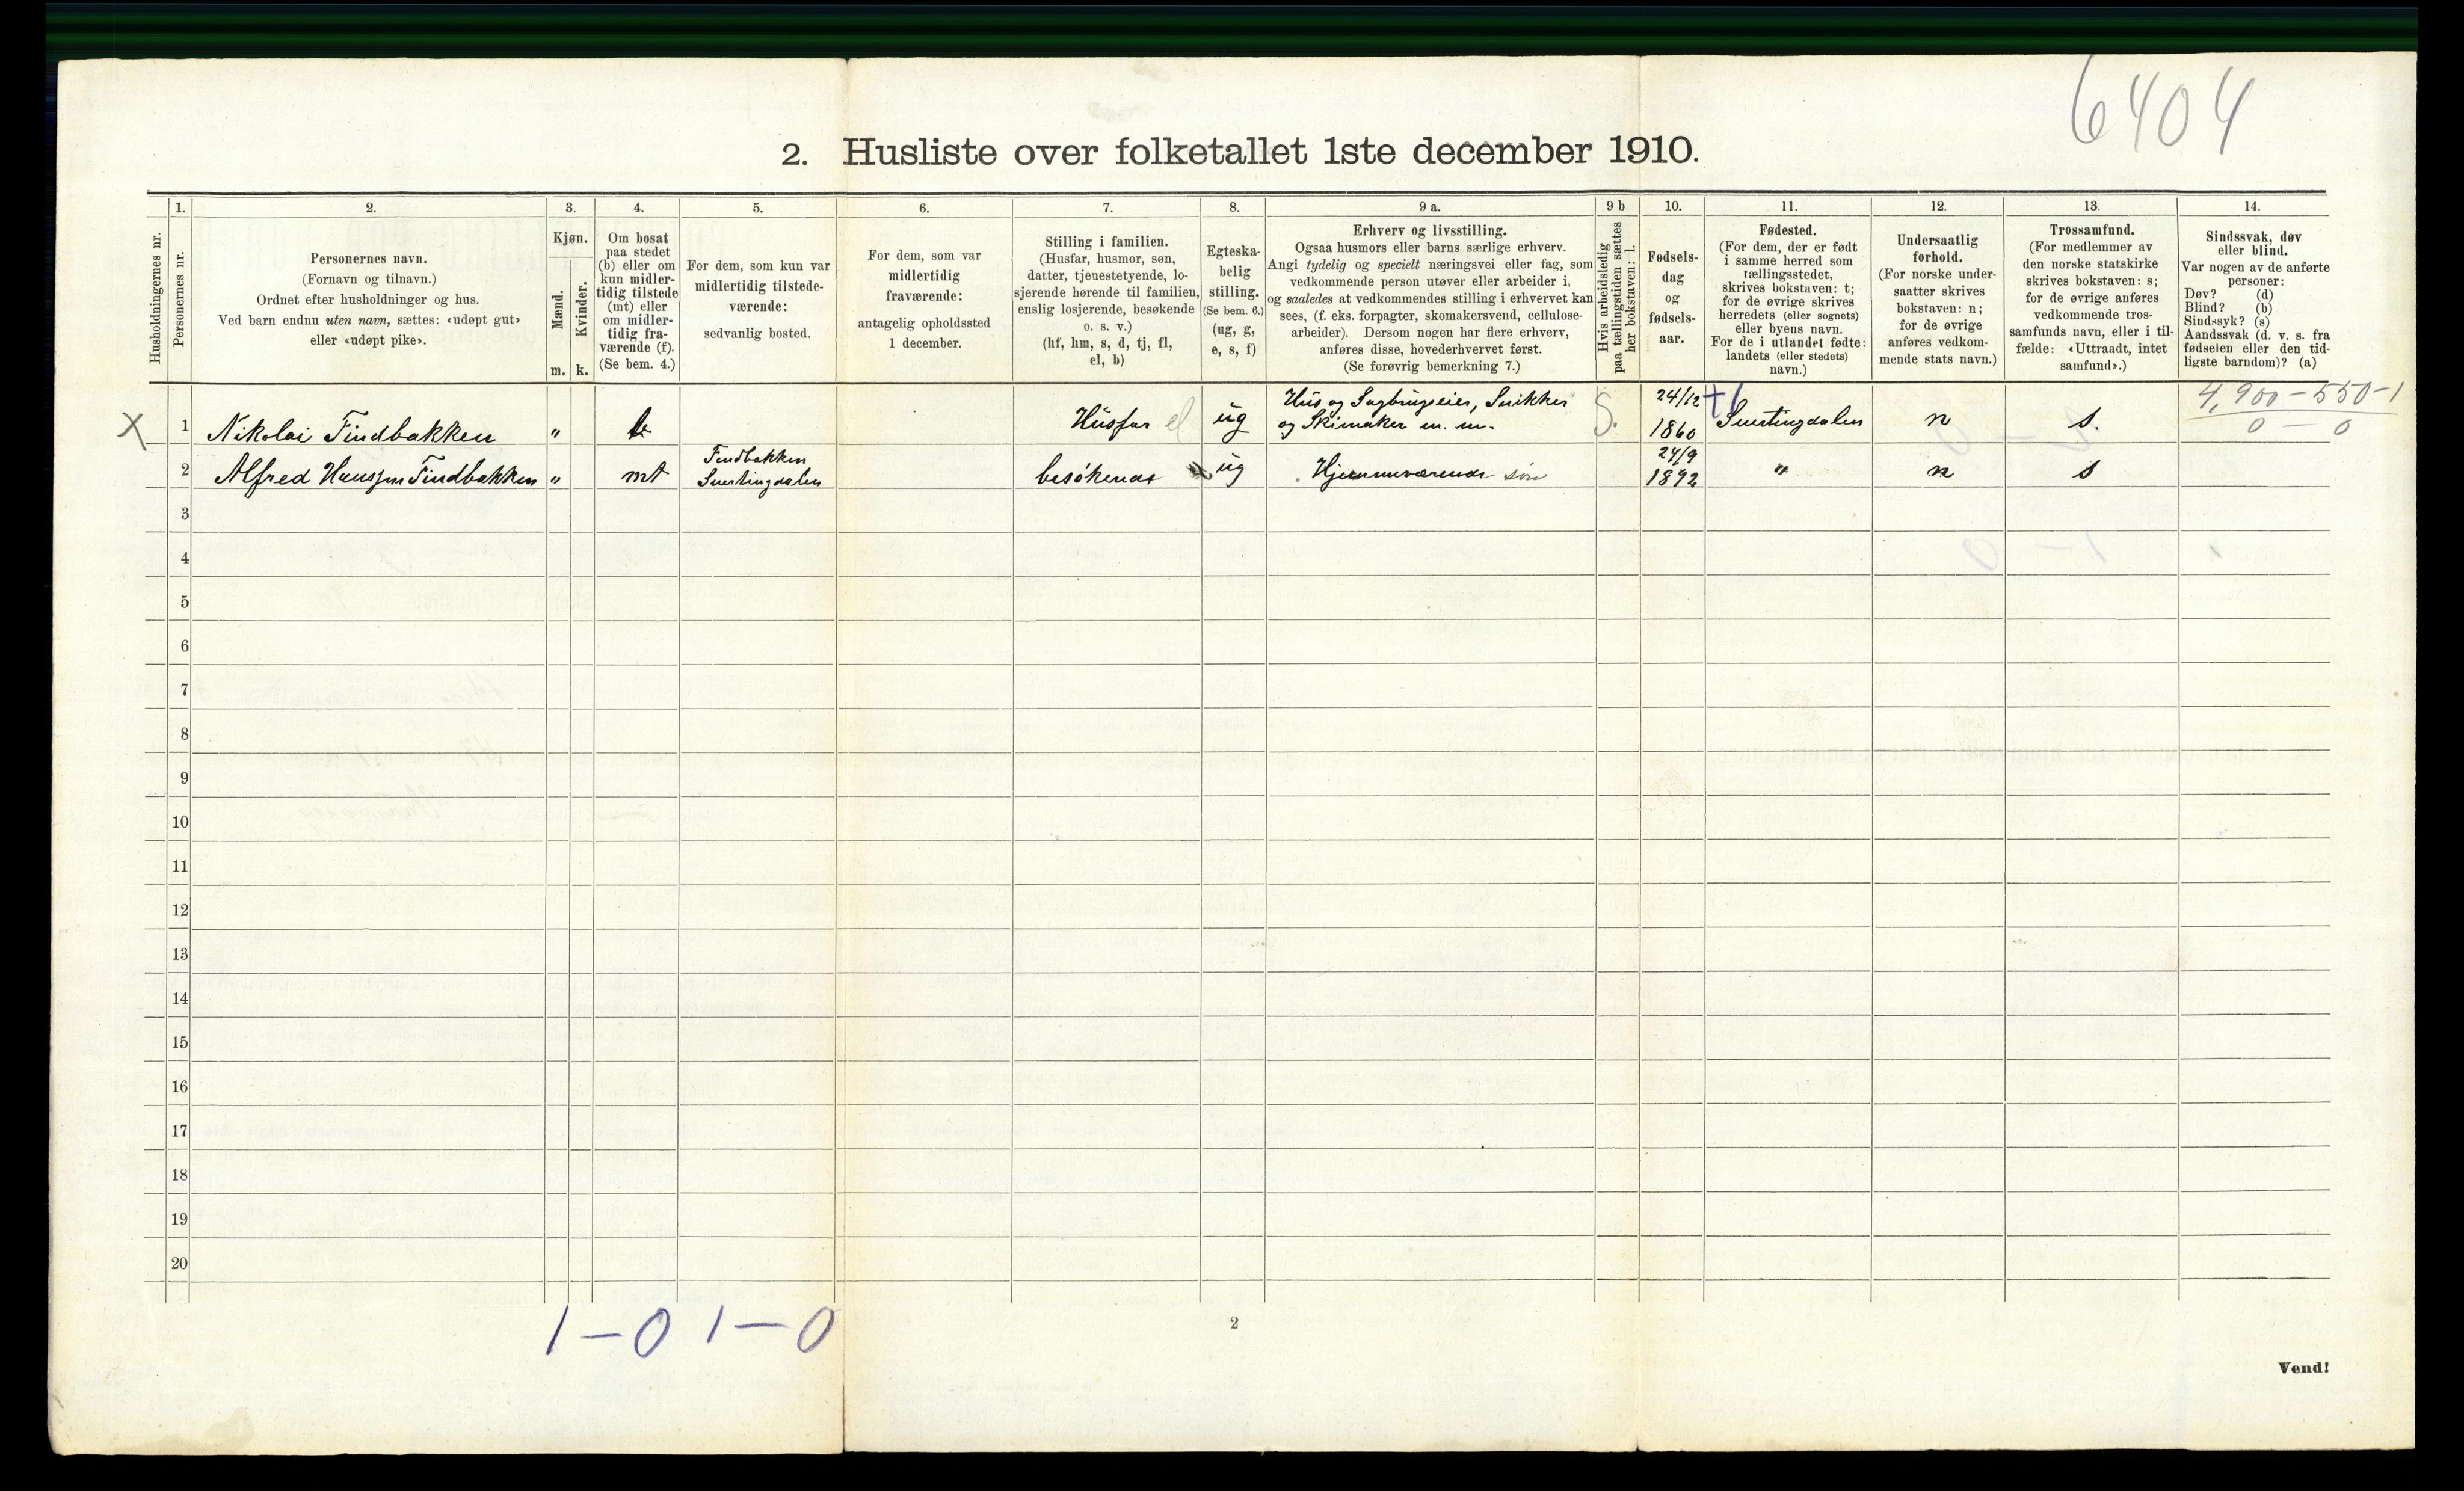 6404
2. Husliste over folketallet 1ste december 1910.
Husholdningernes nr.
1.
Personernes nr.
2.
Personernes navn.
(Fornavn og tilnavn.)
Ordnet efter husholdninger og hus.
Ved barn endnu uten navn, sættes: «udøpt gut»
eller «udøpt pike».
3.
Kjøn.
Mænd.
Kvinder.
m. k.
4.
Om bosat
paa stedet
(b) eller om
kun midler-
tidig tilstede
(mt) eller
om midler-
tidig fra-
værende (f).
(Se bem. 4.)
5.
For dem, som kun var
midlertidig tilstede-
værende:
sedvanlig bosted.
6.
For dem, som var
midlertidig
fraværende:
antagelig opholdssted
1 december.
7.
Stilling i familien.
(Husfar, husmor, søn,
datter, tjenestetyende, lo-
sjerende hørende til familien,
enslig losjerende, besøkende
o. s. v.)
(hf, hm, s, d, tj, fl,
el, b)
8.
Egteska-
belig
stilling.
(Se bem. 6.)
(ug, g,
e, s, f)
9 a.
Erhverv og livsstilling.
Ogsaa husmors eller barns særlige erhverv.
Angi tydelig og specielt næringsvei eller fag, som
vedkommende person utøver eller arbeider i,
og saaledes at vedkommendes stilling i erhvervet kan
sees, (f. eks. forpagter, skomakersvend, cellulose-
arbeider). Dersom nogen har flere erhverv,
anføres disse, hovederhvervet først.
(Se forøvrig bemerkning 7.)
9 b
Hvis arbeidsledig
paa tællingstiden sættes
her bokstaven: l.
10.
Fødsels-
dag
og
fødsels-
aar.
11.
Fødested.
(For dem, der er født
i samme herred som
tællingsstedet,
skrives bokstaven: t;
for de øvrige skrives
herredets (eller sognets)
eller byens navn.
For de i utlandet fødte:
landets (eller stedets)
navn.)
12.
Undersaatlig
forhold.
(For norske under-
saatter skrives
bokstaven: n;
for de øvrige
anføres vedkom-
mende stats navn.)
13.
Trossamfund.
(For medlemmer av
den norske statskirke
skrives bokstaven: s;
for de øvrige anføres
vedkommende tros-
samfunds navn, eller i til-
fælde: «Uttraadt, intet
samfund».)
14.
Sindssvak, døv
eller blind.
Var nogen av de anførte
personer:
Døv? (d)
Blind? (b)
Sindssyk? (s)
Aandssvak (d. v. s. fra
fødselen eller den tid-
ligste barndom)? (a)
4,900-550-1
0 - 0
X 1 Nikolai Findbakken " b Husfar el ug Hus og Sagbrugseier, Snikker
og Skimaker m. m. S. 24/12
1860 Snertingdalen n s.
2 Alfred Hanssen Findbakken " mt Findbakken
Snertingdalen besökende ug Hjemmeværende søn 24/9
1892 " n s
3
4
5
6
7
8
9
10
11
12
13
14
15
16
17
18
19
20
1-0 1-0
2
Vend!